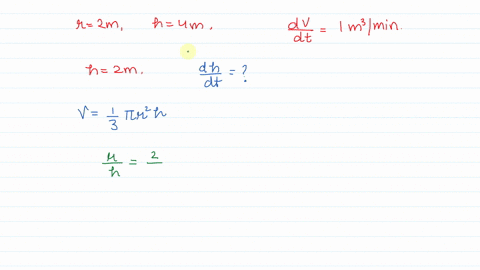 r = 2m, h = 4m, dV/dt = 1 m³/min.
h = 2m. dh/dt = ?
V = 1/3 πr²h
r/h = 2/